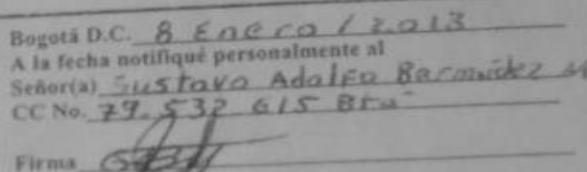 Bogotá D.C. 8 Enero / 2.013
A la fecha notifiqué personalmente al
Señor(a) Gustavo Adolfo Bermúdez
CC No. 79.532 615
Firma